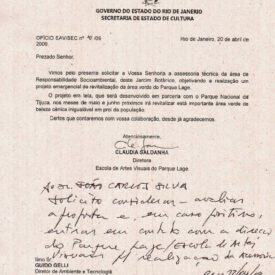 GOVERNO DO ESTADO DO RIO DE JANEIRO
SECRETARIA DE ESTADO DE CULTURA
OFÍCIO EAV/SEC nº /09
Rio de Janeiro, 20 de abril de
2009.
Prezado Senhor,
Vimos pelo presente solicitar a Vossa Senhoria a assessoria técnica da área de
Responsabilidade Socioambiental, deste Jardim Botânico, objetivando a realização de um
projeto emergencial de revitalização da área verde do Parque Lage.
O projeto em tela, que será desenvolvido em parceria com o Parque Nacional da
Tijuca, nos meses de maio e junho próximos irá revitalizar esta importante área verde de
beleza cênica inigualável em prol da população.
Certos que contaremos com vossa colaboração, desde já agradecemos.
Atenciosamente
CLAUDIA SALDANHA
Diretora
Escola de Artes Visuais do Parque Lage.
Ao Dr. JOÃO CARLOS SILVA
Solicito considerar - avaliar
a proposta e, em caso positivo,
entrar em contato com a direção
do Parque Lage/Escola de Artes
Visuais p/ realização da
GUIDO GELLI
Diretor de Ambiente e Tecnologia